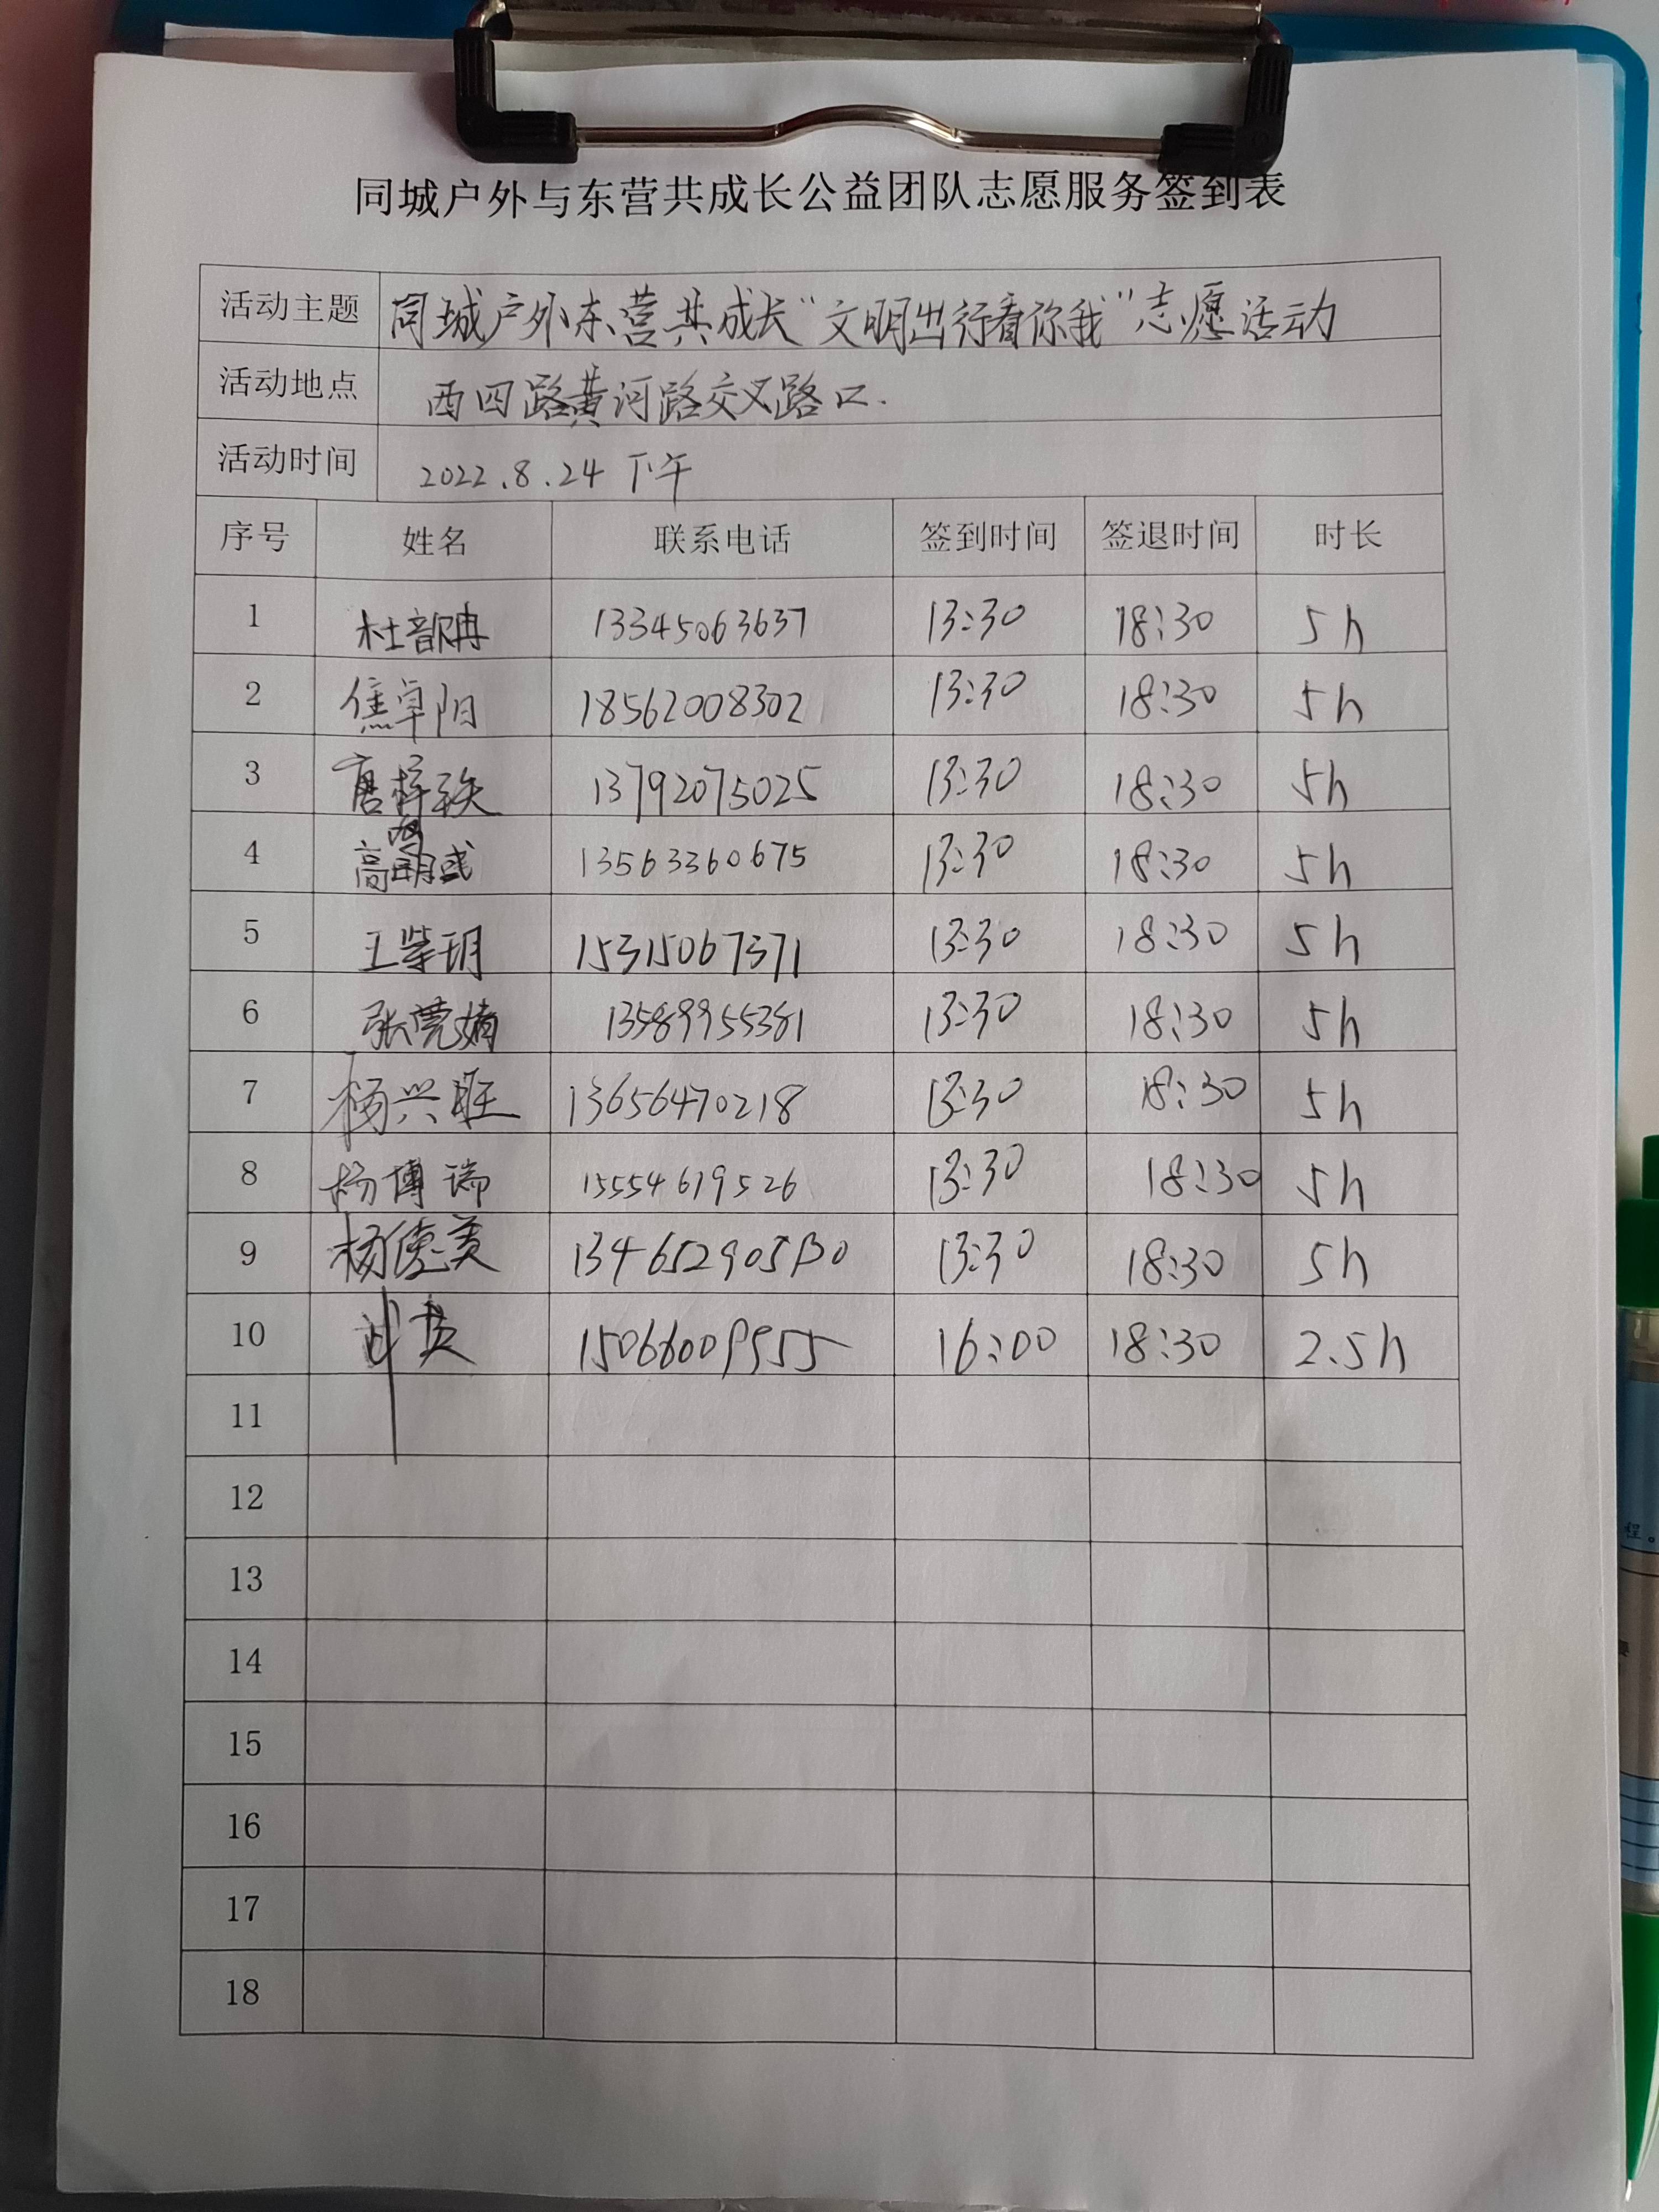 同城户外与东营共成长公益团队志愿服务签到表
活动主题 同城户外东营共成长“文明出行看你我”志愿活动
活动地点 西四路黄河路交叉路口.
活动时间 2022.8.24 下午
序号 姓名 联系电话 签到时间 签退时间 时长
1 杜韵冉 13345063637 13:30 18:30 5h
2 焦卓阳 18562008302 13:30 18:30 5h
3 唐梓轶 13792075025 13:30 18:30 5h
4 高 13563360675 13:30 18:30 5h
5 王紫玥 15315067371 13:30 18:30 5h
6 张莞婧 13589955381 13:30 18:30 5h
7 杨兴旺 13656470218 13:30 18:30 5h
8 杨博瑞 15554619526 13:30 18:30 5h
9 杨德美 13:30 18:30 5h
10 15066009955 16:00 18:30 2.5h
11
12
13
14
15
16
17
18
程。